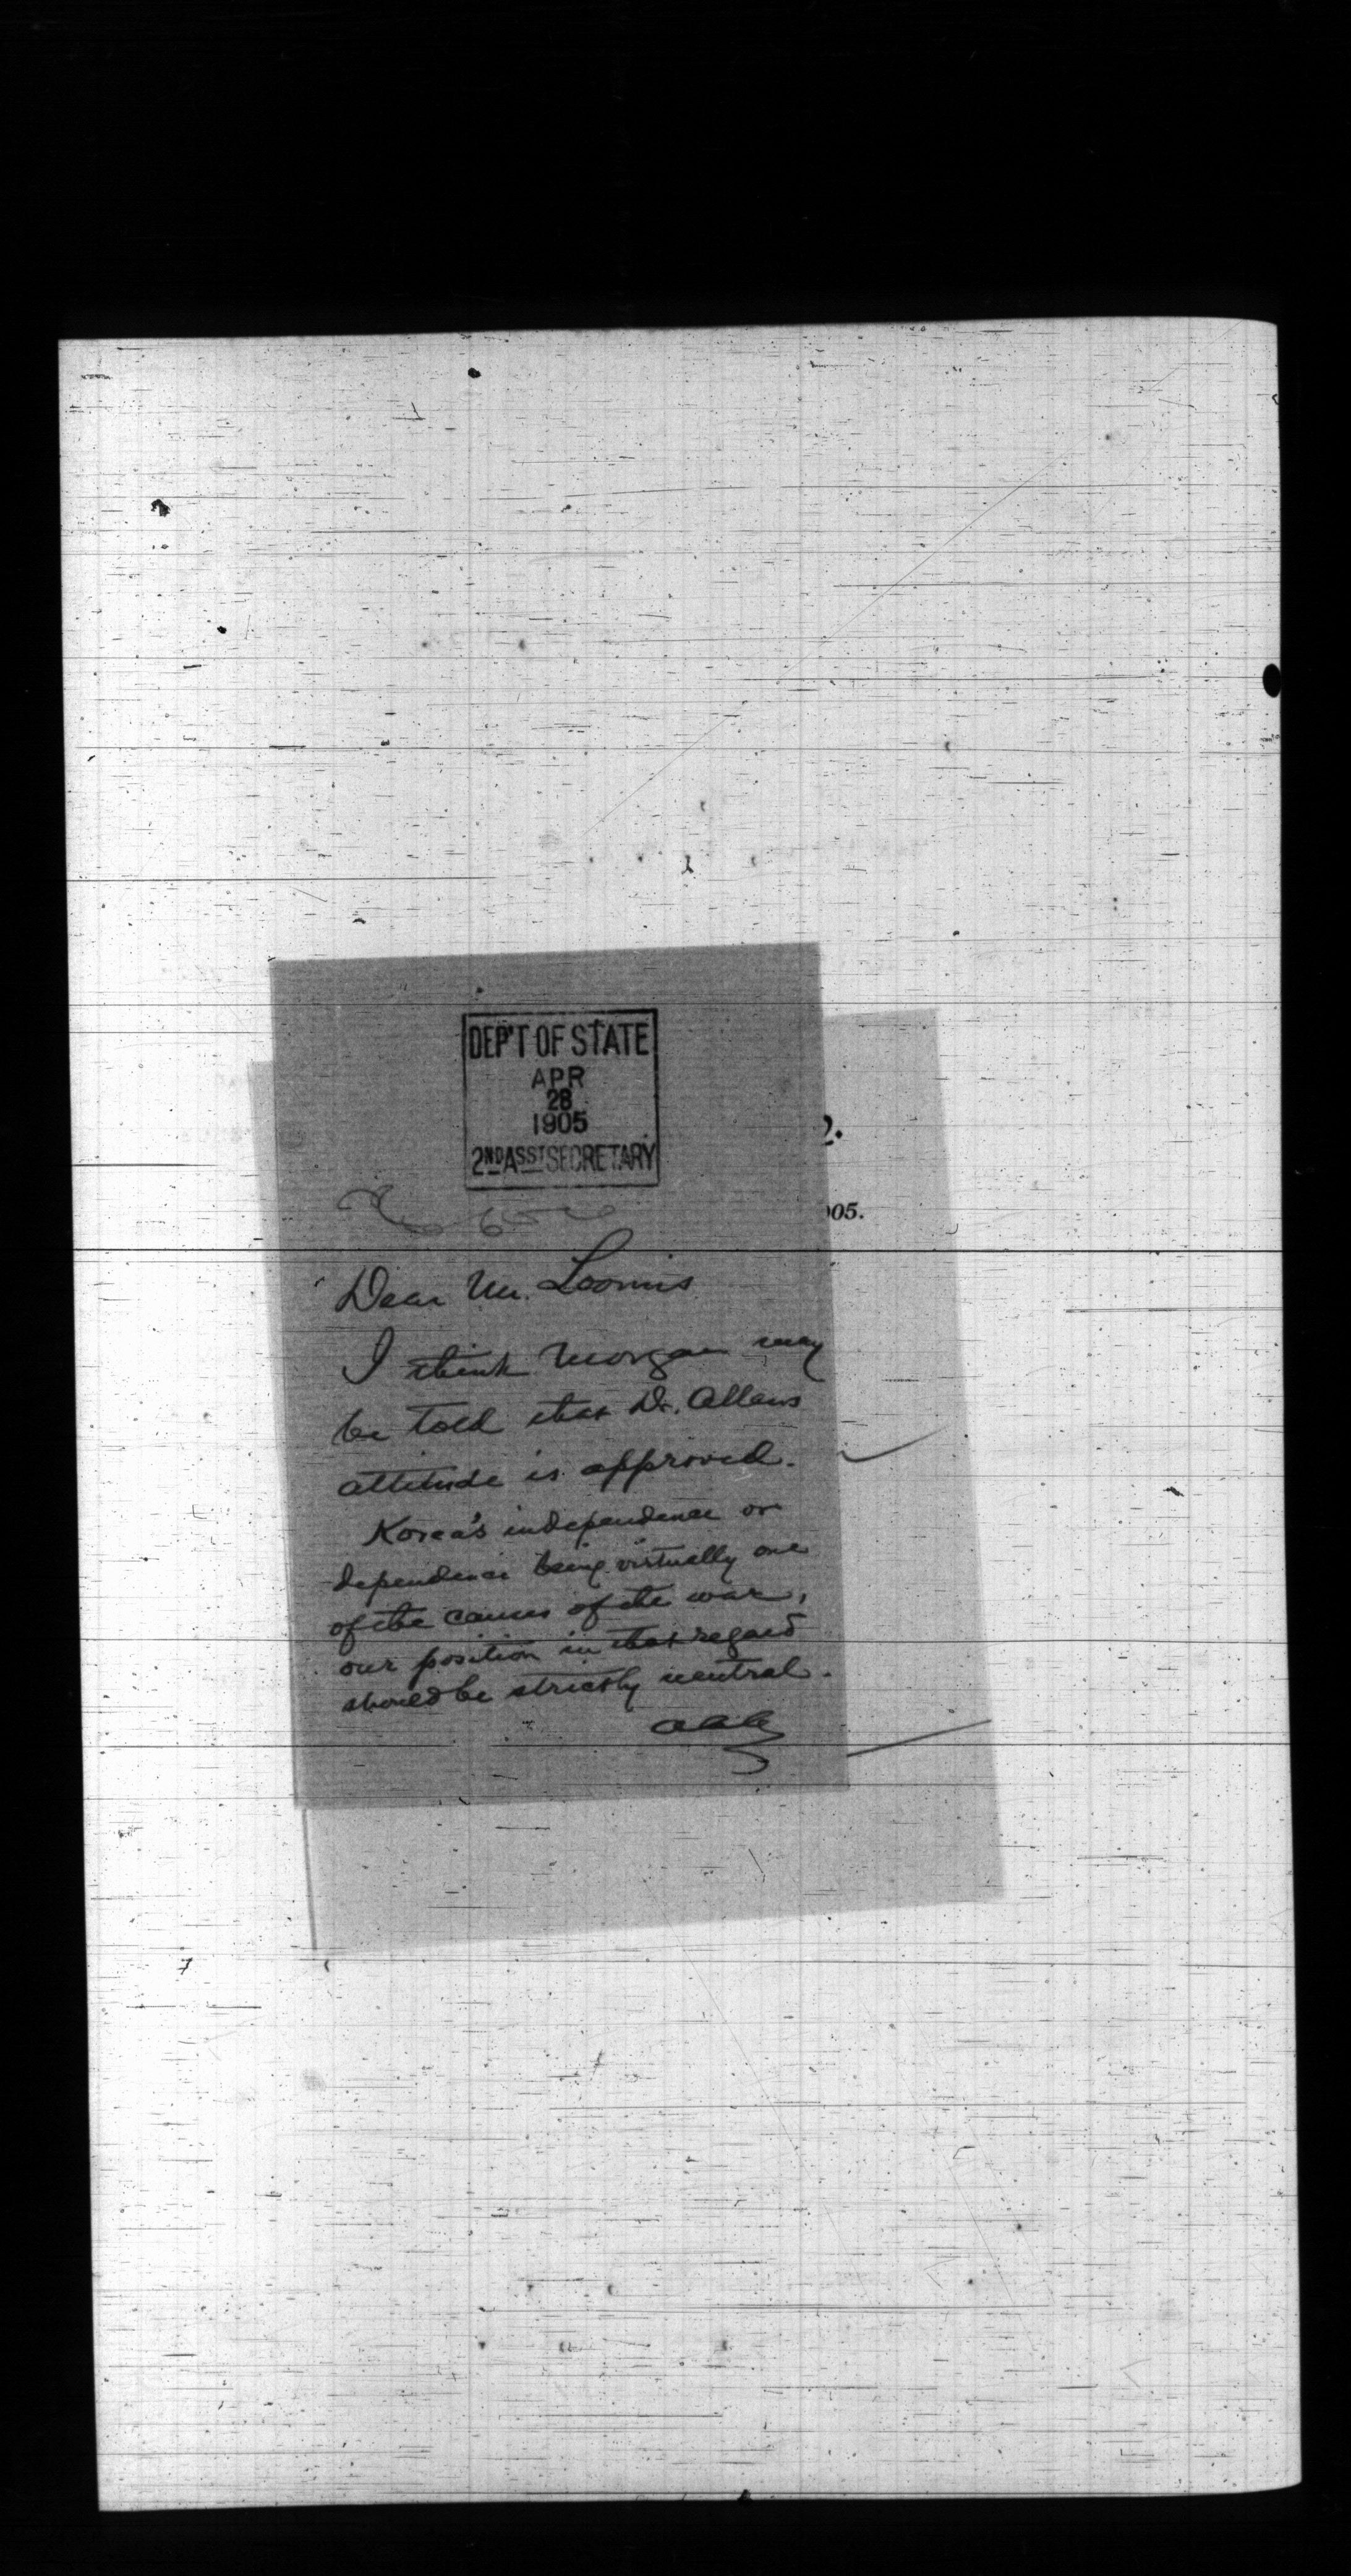 DEP'T OF STATE
APR
28
1905
2ND ASST SECRETARY
2.
905.
Dear Mr. Loomis
I think Morgan may
be told that Dr. Allen's
attitude is approved.
Korea's independence or
dependence being virtually one
of the causes of the war,
our position in that regard
should be strictly neutral.